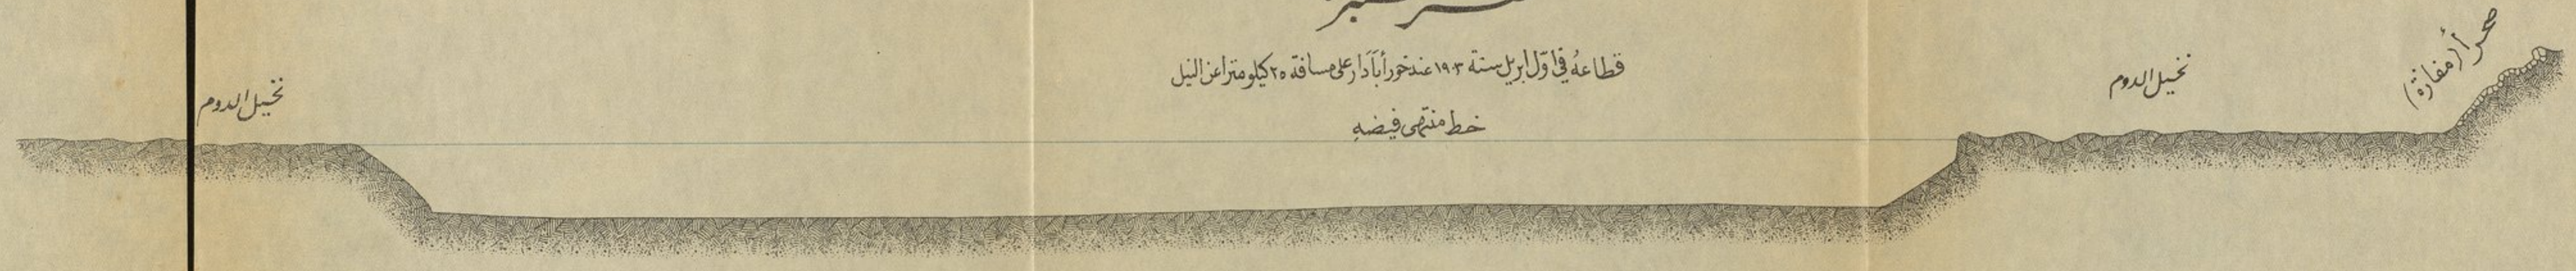 قطاعهُ في اوّل ابريل سنة ١٩٠٣ عند خور أباَدار على مسافة ٢٥ كيلومترا عن النيل
خط منتهى فيضهِ
نخيل الدوم
نخيل الدوم
صحرأ (مفازة)